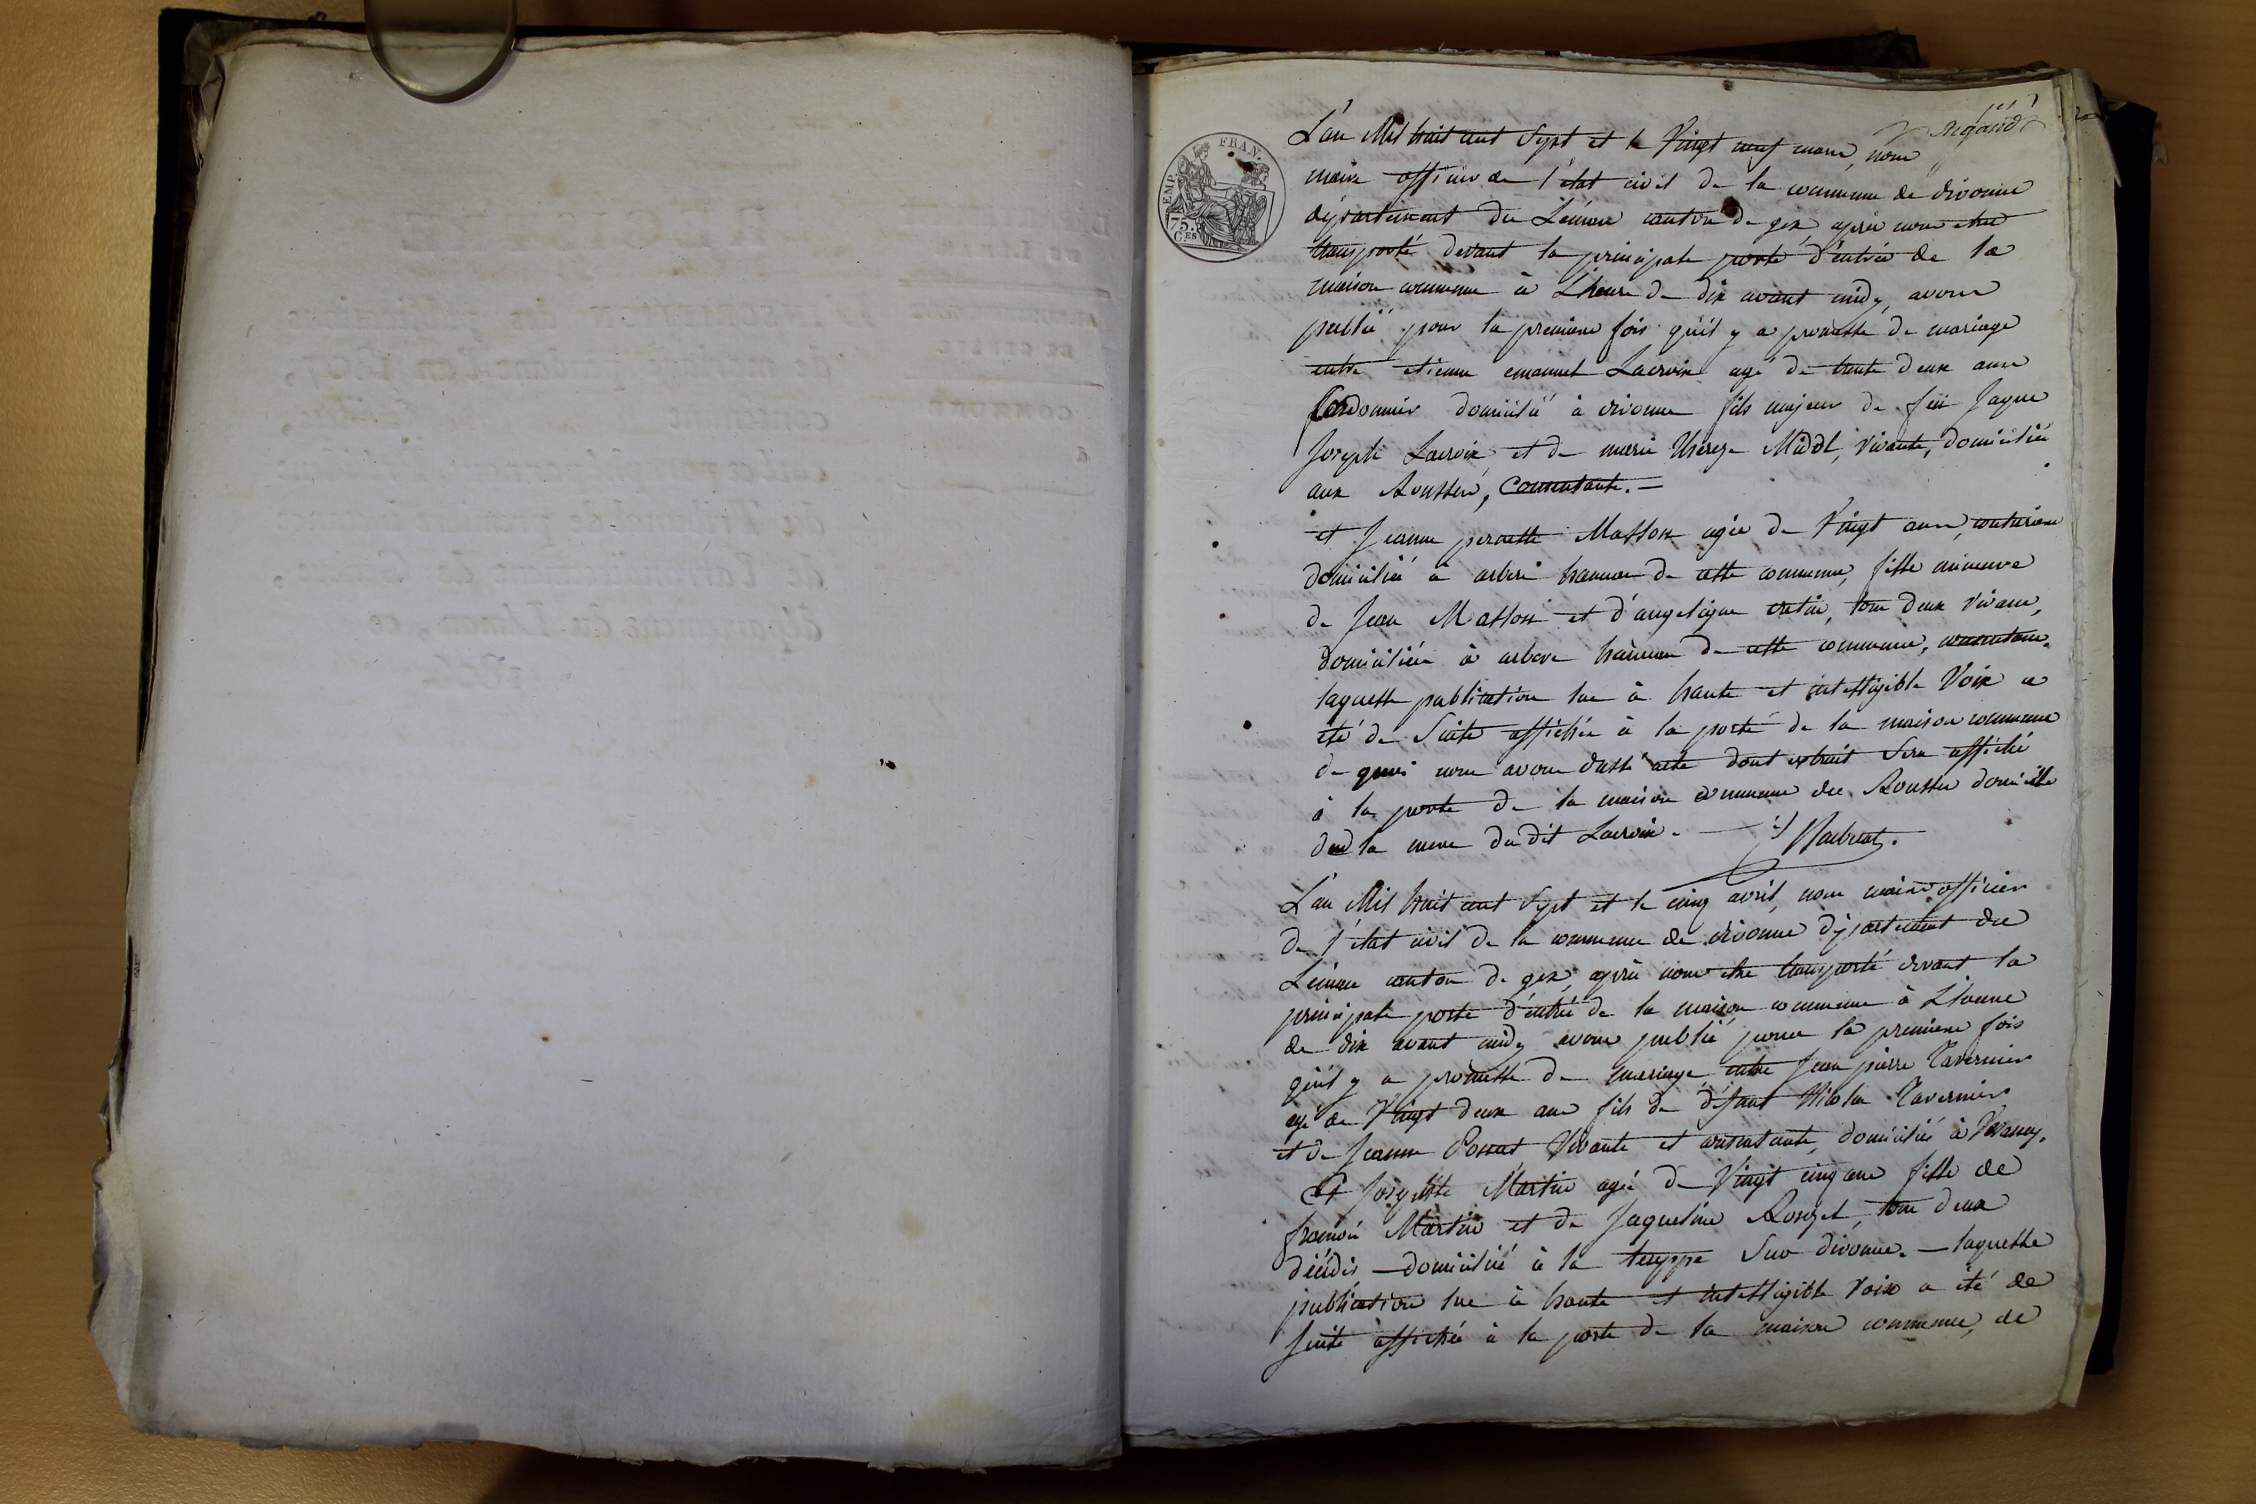 EMP. FRAN.
75.
C.ES
L'an Mil huit cent Sept et le Vingt neuf mars, nous
maire officier de l'état civil de la commune de divonne
département du Léman canton de gex, après nous etre
transporté devant la principale porte d'entrée de la
maison commune à L'heure de dix avant midy, avons
publié pour la premiere fois qu'il y a promesse de mariage
entre etienne emanuel Lacroix agé de trente deux ans
Cordonnier domicilié à divonne fils majeur de feu Jaque
Joseph Lacroix et de marie therese Midol, vivante, domiciliée
aux Rousses, Consentante. —
et Jeanne pernette Masson agée de Vingt ans, couturiere
domiciliée à arbere hameau de cette commune, fille mineure
de Jean Masson et d'angelique cretin, tous deux vivans,
domiciliés à arbere hameau de cette commune, consentans.
laquelle publication lue à haute et intelligible Voix a
été de Suite affichée à la porte de la maison commune
de quoi nous avons dressé acte dont extrait Sera affiché
à la porte de la maison commune des Rousses domicile
de la mere du dit Lacroix. —
L'an Mil huit cent Sept et le cinq avril, nous maire officier
de l'état civil de la commune de divonne département du
Léman canton de gex, après nous etre transporté devant la
principale porte d'entrée de la maison commune à L'heure
de dix avant midy avons publié pour la premiere fois
qu'il y a promesse de mariage entre Jean pierre Tavernier
agé de Vingt deux ans fils de défunt Nicolas Tavernier
et de Jeanne Vivante et consentante, domicilié à
Et Josephte Martin agée de Vingt cinq ans fille de
françois Martin et de Jaqueline Rouget, tous deux
décédés — domiciliée à la Sur divonne. — laquelle
publication lue à haute et intelligible voix a été de
Suite affichée à la porte de la maison commune, de